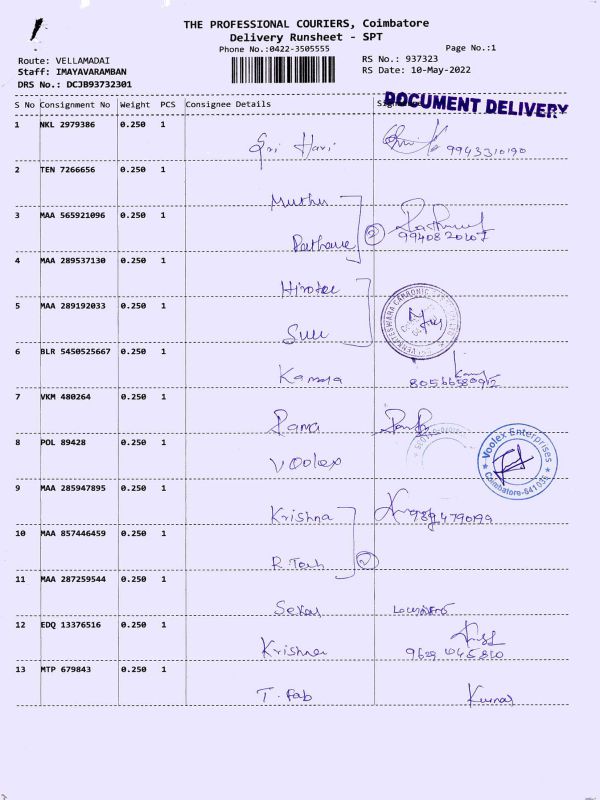 THE PROFESSIONAL COURIERS, Coimbatore
Delivery Runsheet - SPT
Phone No.:0422-3505555
Page No.:1
Route: VELLAMADAI
RS No.: 937323
Staff: IMAYAVARAMBAN
RS Date: 10-May-2022
DRS No.: DCJB93732301
S No Consignment No Weight PCS Consignee Details
DOCUMENT DELIVERY
1 NKL 2979386 0.250 1
Sri Hari 9943310190
2 TEN 7266656 0.250 1
Muthu
3 MAA 565921096 0.250 1
2
9940820207
4 MAA 289537130 0.250 1
5 MAA 289192033 0.250 1
6 BLR 5450525667 0.250 1
7 VKM 480264 0.250 1
Rama
8 POL 89428 0.250 1
Voolex
Voolex Enterprises
Coimbatore-641035
9 MAA 285947895 0.250 1
Krishna
10 MAA 857446459 0.250 1
R.Tech 2
11 MAA 287259544 0.250 1
12 EDQ 13376516 0.250 1
13 MTP 679843 0.250 1
T. Fab Kumar